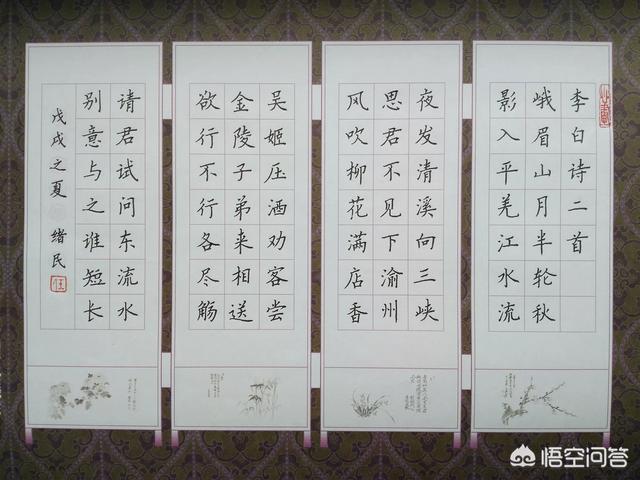 李白诗二首
峨眉山月半轮秋
影入平羌江水流
夜发清溪向三峡
思君不见下渝州
风吹柳花满店香
吴姬压酒劝客尝
金陵子弟来相送
欲行不行各尽觞
请君试问东流水
别意与之谁短长
戊戌之夏 绪民
悟空问答